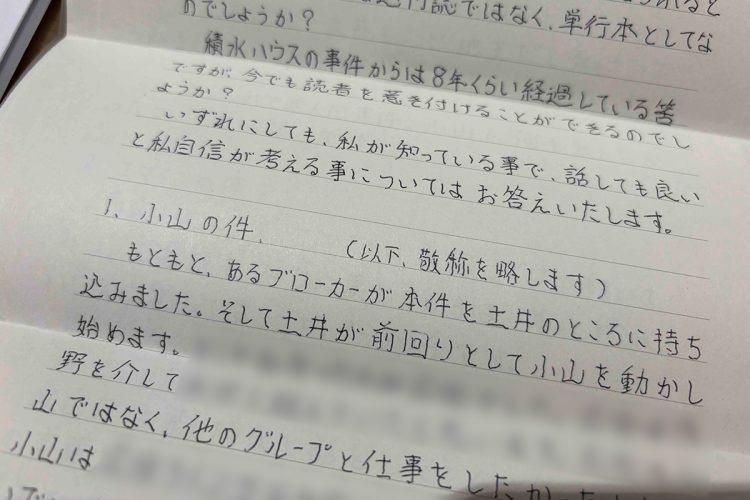 誌ではなく、単行本としてな
のでしょうか？
積水ハウスの事件からは8年くらい経過している筈
ですが、今でも読者を惹き付けることができるのでし
ょうか？
いずれにしても、私が知っている事で、話しても良い
と私自信が考える事についてはお答えいたします。
1、小山の件、（以下、敬称を略します）
もともと、あるブローカーが本件を土井のところに持ち
込みました。そして土井が前回りとして小山を動かし
始めます。
野を介して
山ではなく、他のグループと仕事をしたか
小山は